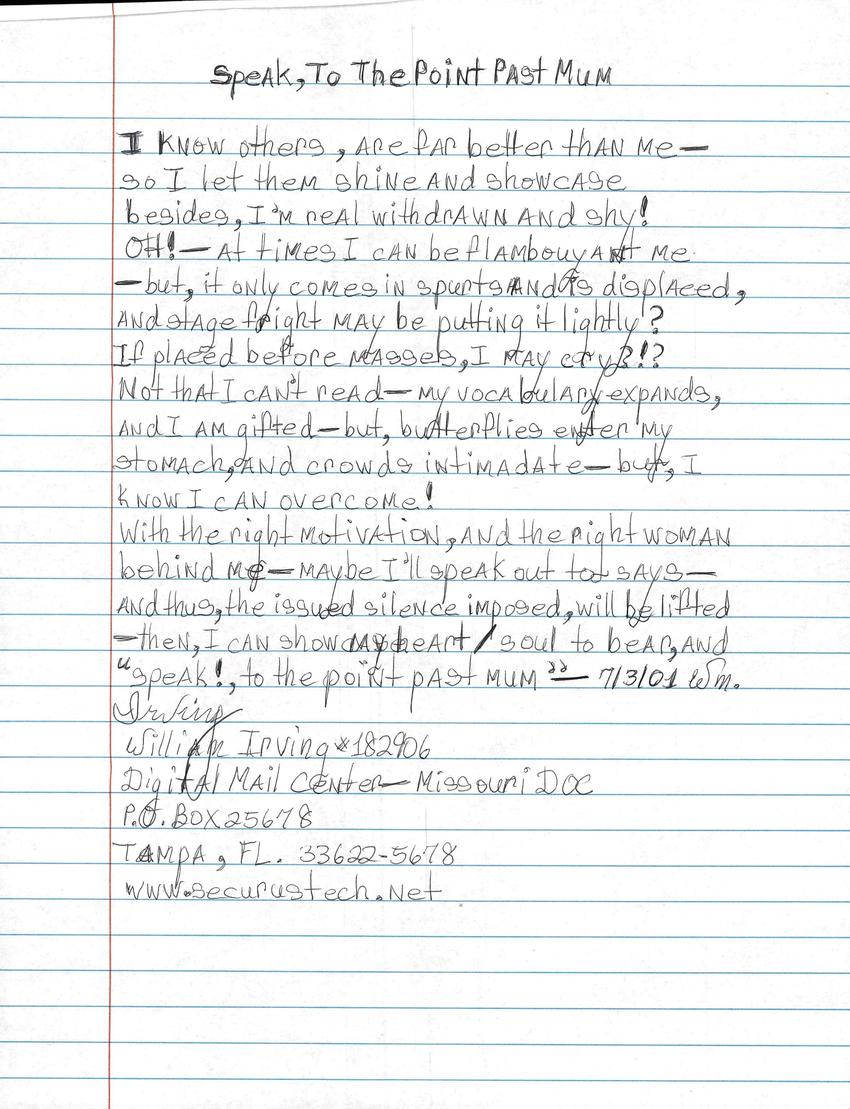 Speak, To The Point Past Mum
I know others, are far better than me—
so I let them shine and showcase
besides, I'm real withdrawn and shy!
OH!—At times I can be flambouyant me
—but, it only comes in spurts and is displaced,
and stage fright may be putting it lightly?
If placed before masses, I may cry!?
Not that I can't read—my vocabulary expands,
and I am gifted—but, butterflies enter my
stomach, and crowds intimadate—but, I
know I can overcome!
With the right motivation, and the right woman
behind me—maybe I'll speak out to says—
and thus, the issued silence imposed, will be lifted
—then, I can show my heart/soul to bear, and
"speak!, to the point past mum"— 7/3/01 Wm.
Irving
William Irving #182906
Digital Mail Center—Missouri DOC
P.O. Box 25678
Tampa, FL. 33622-5678
www.securustech.net